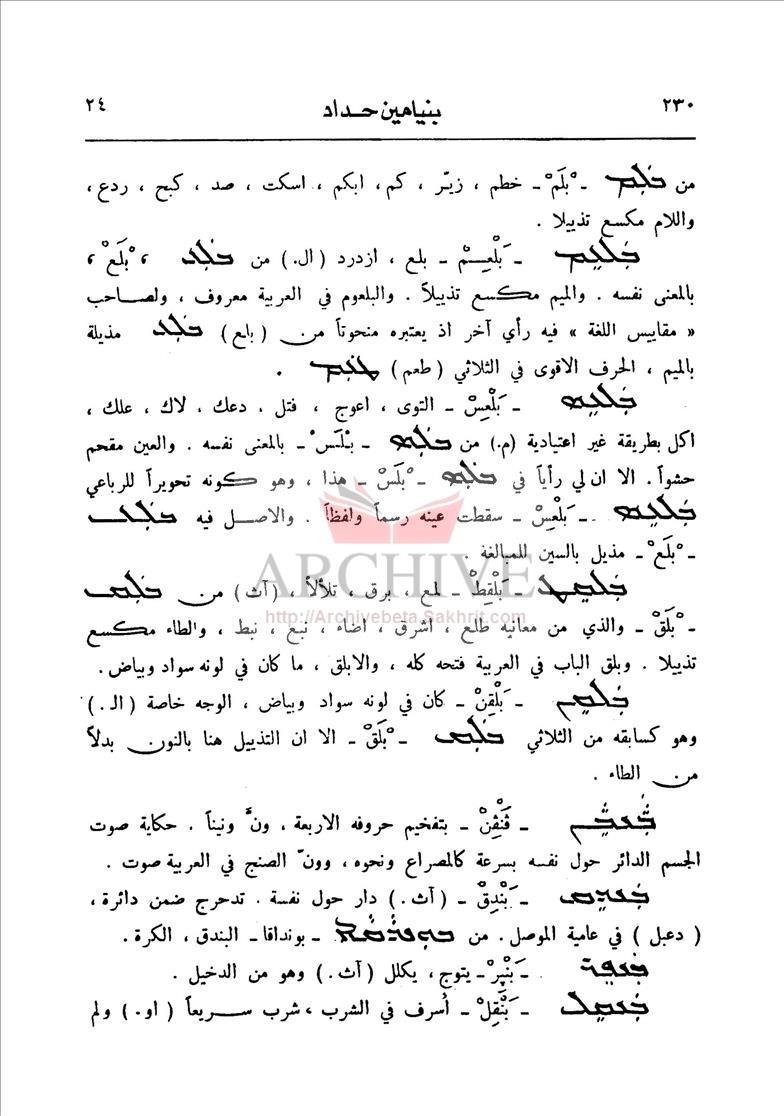 ٢٣٠ بنيامين حداد ٢٤
من ܒܠܡ ـ ْبلَمْ ـ خطم ، زيّر ، كم ، ابكم ، اسكت ، صد ، كبح ، ردع ،
واللام مكسع تذييلا .
ܒܠܥܡ ـ بَلْعِمْ ـ بلع ، ازدرد ( ال. ) من ܒܠܥ ، ْبلَعْ ،
بالمعنى نفسه . والميم مكسع تذييلاً . والبلعوم في العربية معروف ، ولصاحب
« مقاييس اللغة » فيه رأي آخر اذ يعتبره منحوتاً من ( بلع ) ܒܠܥ مذيلة
بالميم ، الحرف الاقوى في الثلاثي ( طعم ) ܛܥܡ .
ܒܠܥܣ ـ بَلْعِسْ ـ التوى ، اعوج ، فتل . دعك ، لاك ، علك ،
اكل بطريقة غير اعتيادية ( م. ) من ܒܠܣ ـ ْبلَسْ ـ بالمعنى نفسه . والعين مقحم
حشواً . الا ان لي رأياً في ܒܠܣ ـ ْبلَسْ ـ هذا ، وهو كونه تحويراً للرباعي
ܒܠܥܣ ـ بَلْعِسْ ـ سقطت عينه رسماً ولفظاً . والاصل فيه ܒܠܥ
ـ ْبلَعْ ـ مذيل بالسين للمبالغة .
ARCHIVE
ܒܠܩܛ بَلْقِطْ ـ لمع ، برق ، تلألأ ، ( آث ) من ܒܠܩ
http://Archivebeta.Sakhrit.com
ـ ْبلَقْ ـ والذي من معانيه طلع ، اشرق ، اضاء ، نبع ، نبط ، والطاء مكسع
تذييلا . وبلق الباب في العربية فتحه كله ، والابلق ، ما كان في لونه سواد وبياض .
ܒܠܩܢ ـ بَلْقِنْ ـ كان في لونه سواد وبياض ، الوجه خاصة ( الـ . )
وهو كسابقه من الثلاثي ܒܠܩ ـ ْبلَقْ ـ الا ان التذييل هنا بالنون بدلاً
من الطاء .
ـ بتفخيم حروفه الاربعة ، ونّ ونيناً . حكاية صوت
الجسم الدائر حول نفسه بسرعة كالمصراع ونحوه ، وونّ الصنج في العربية صوت .
ܒܢܕܩ ـ بَنْدِقْ ـ ( آث . ) دار حول نفسة . تدحرج ضمن دائرة ،
( دعبل ) في عامية الموصل . من ـ بونداقا ـ البندق ، الكرة .
ـ يتوج ، يكلل ( آث . ) وهو من الدخيل .
ܒܢܩܠ ـ بَنْقِلْ ـ أسرف في الشرب ، شرب سريعاً ( او . ) ولم